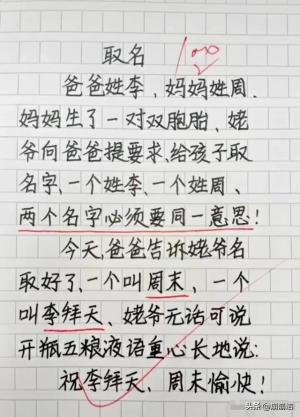 取名 100
爸爸姓李，妈妈姓周，
妈妈生了一对双胞胎，姥
爷向爸爸提要求，给孩子取
名字，一个姓李、一个姓周、
两个名字必须要同一意思！
今天，爸爸告诉姥爷名
取好了，一个叫周末，一个
叫李拜天、姥爷无话可说
开瓶五粮液语重心长地说：
祝李拜天、周末愉快！